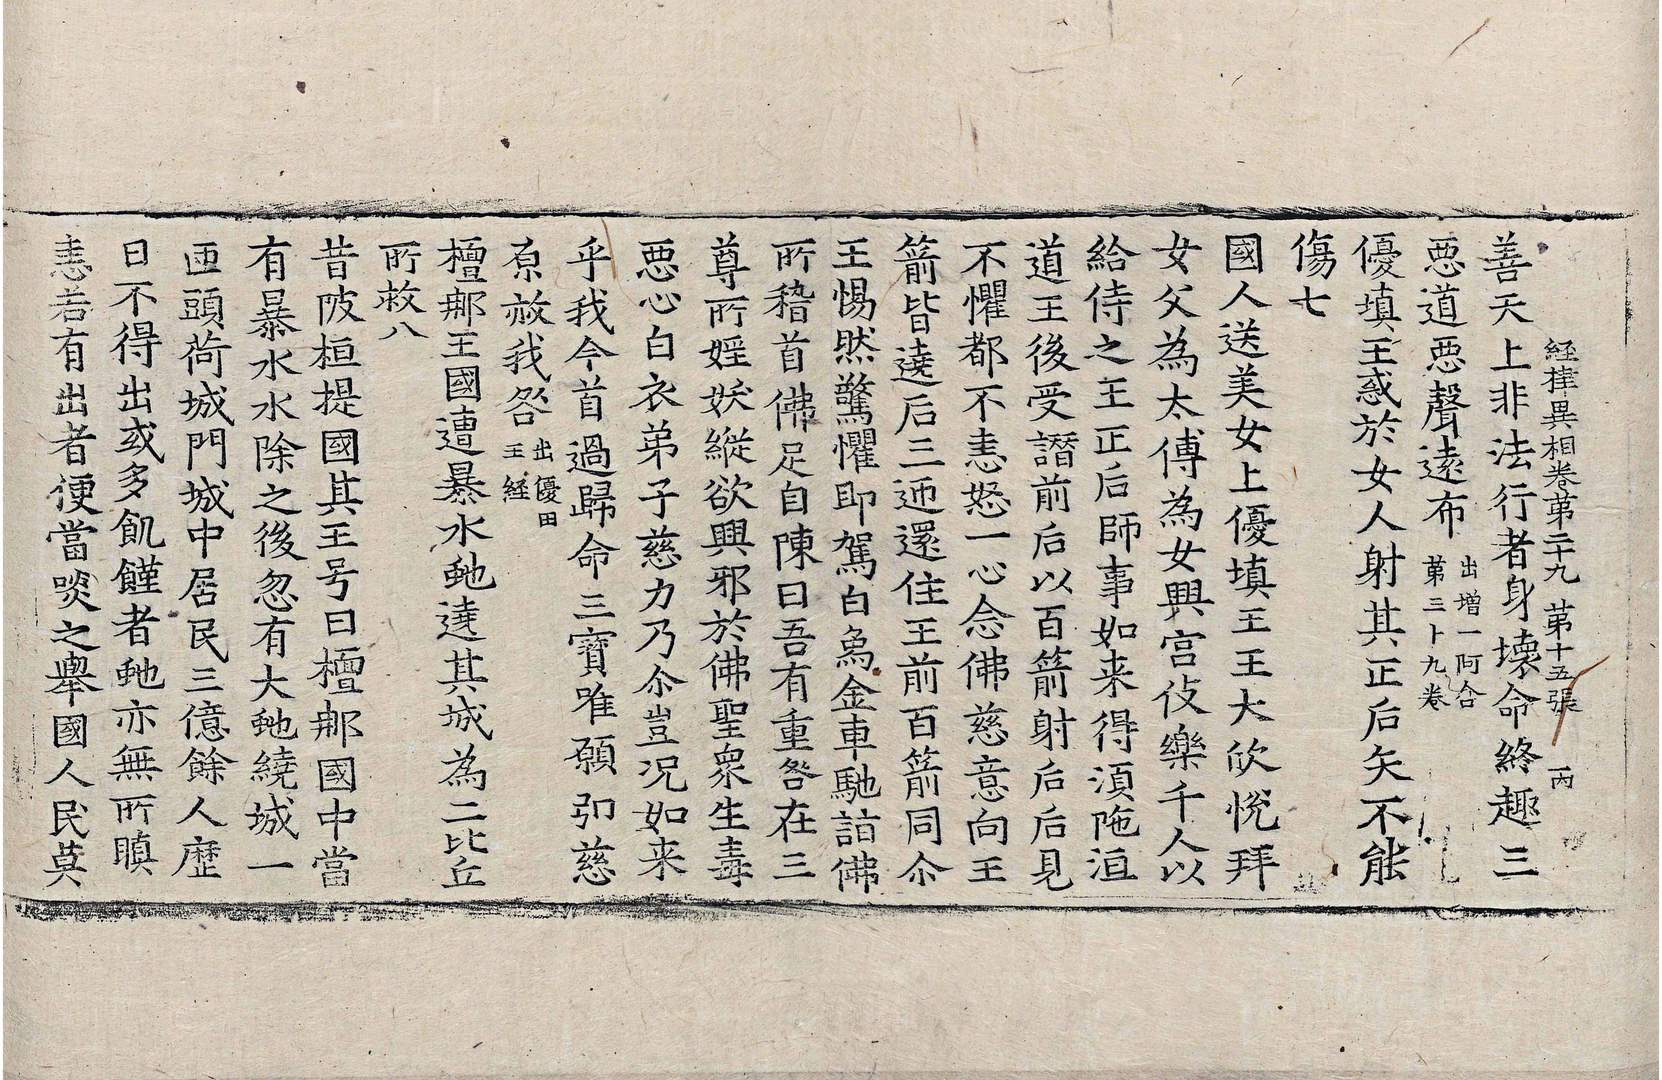 経律異相卷苐二十九 苐十五張 丙
善天上非法行者身壊命終趣三
惡道惡聲逺布 出增一阿含苐三十九卷
優填王惑於女人射其正后矢不能
傷七
國人送美女上優填王王大欣悅拜
女父為太傅為女興宫伎樂千人以
給侍之王正后師事如来得湏陁洹
道王後受譖前后以百箭射后后見
不懼都不恚怒一心念佛慈意向王
箭皆遶后三迊還住王前百箭同尒
王惕然驚懼即駕白象金車馳詣佛
所稽首佛足自陳曰吾有重咎在三
尊所婬妖縱欲興邪於佛聖衆生毒
惡心白衣弟子慈力乃尒豈况如来
乎我今首過歸命三寶唯願弘慈
原赦我咎 出優田王経
檀那王國遭暴水虵遶其城為二比丘
所救八
昔陂桓提國其王号曰檀那國中當
有暴水水除之後忽有大虵繞城一
迊頭荷城門城中居民三億餘人歷
日不得出或多飢饉者虵亦無所瞋
恚若有出者便當啖之舉國人民莫